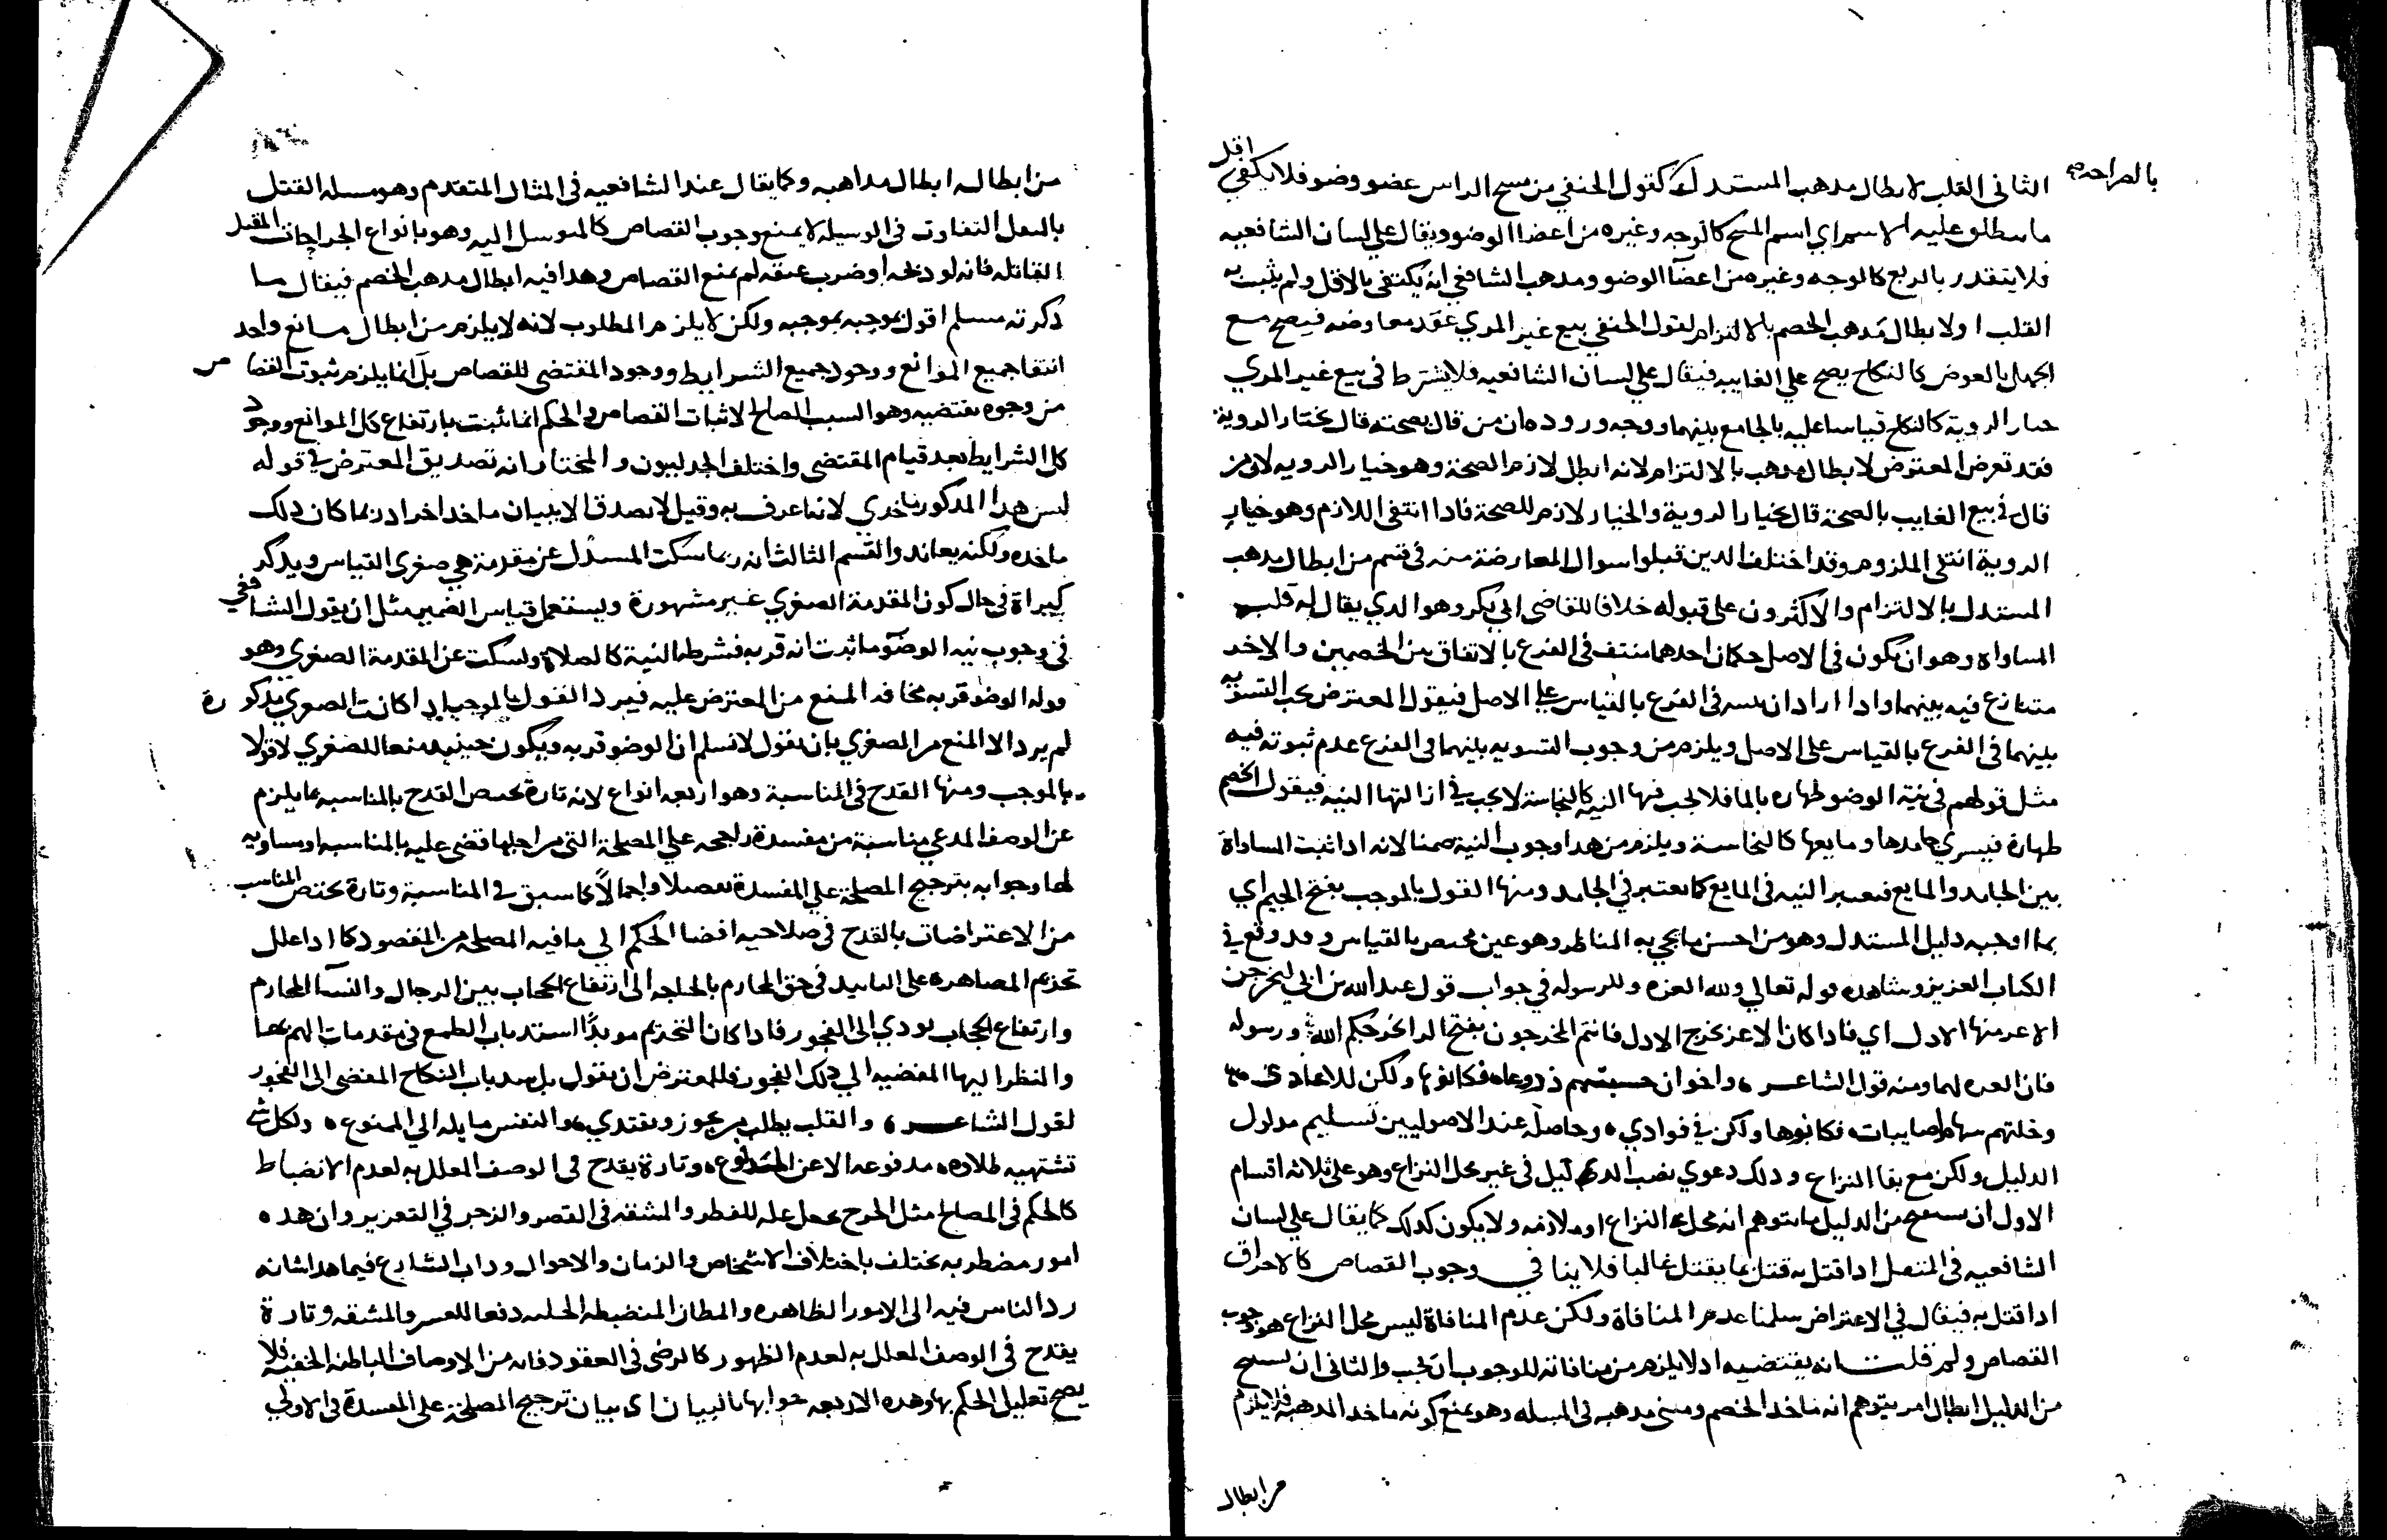 بالصراحة
الثانى القلب لابطال مدهب المستدل كقول الحنفي من مسح الراس عضو وضو فلا يكفي اقل
ما ينطلق عليه الاسم اي اسم المسح كالوجه وغيره من اعضا الوضو ويقال علي لسان الشافعيه
فلا يتقدر بالربع كالوجه وغيره من اعضا الوضو ومدهب الشافعي انه يكتفى بالاقل ولم يثبت به
القلب اولابطال مدهب الخصم بالالتزام لقول الحنفي بيع غير المري عقد معاوضه فيصح مع
الجهل بالعوض كالنكاح يصح علي الغايبه فيقال علي لسان الشافعيه فلا يشترط فى بيع غير المري
خيار الروية كالنكاح قياسا عليه بالجامع بينهما ووجه وروده ان من قال بصحته قال بخيار الروية
فقد تعرض المعترض لابطال مدهب بالالتزام لانه ابطل لازم الصحة وهو خيار الرويه لان من
قال في بيع الغايب بالصحة قال بخيار الروية والخيار لازم للصحة فادا انتفى اللازم وهو خيار
الروية انتفى الملزوم وقد اختلف الدين قبلوا سوال المعارضة منه في قسم من ابطال مدهب
المستدل بالالتزام والاكثرون على قبوله خلافا للقاضى ابي بكر وهو الدي يقال له قلب
المساواه وهو ان يكون فى الاصل حكمان احدهما منتف فى الفرع بالاتفاق بين الخصمين والاخر
متنازع فيه بينهما وادا اراد ان يسه فى الفرع بالقياس علي الاصل فيقول المعترض يجب التسويه
بينهما فى الفرع بالقياس على الاصل ويلزم من وجوب التسويه بينهما فى الفرع عدم ثبوته فيه
مثل قولهم فى نية الوضو طهاره بالما فلا يجب فيها النيه كالنجاسة لا يجب في ازالتها النيه فيقول الخصم
طهارة فيسري جامدها ومايعها كالنجاسة ويلزم من هدا وجوب النية ضمنا لانه ادا ثبت المساواة
بين الجامد والمايع فيعتبر النيه فى المايع كما يعتبر في الجامد ومنها القول بالموجب بفتح الجيم اي
بما اوجبه دليل المستدل وهو من احسن ما يجي به المناظر وهو عين مختص بالقياس وقد وقع في
الكتاب العزيز وشاهده قوله تعالي ولله العزه ولرسوله في جواب قول عبد الله بن ابي ليخرجن
الاعز منها الادل اي فادا كان الاعز يخرج الادل فانتم المخرجون بفتح الرا يخرجكم الله ورسوله
فان العزه لهما ومنه قول الشاعر ٥ واخوان حسبتهم دروعا ٥ فكانوها ولكن للاعادي ٥
وخلتهم سهاما صايبات ٥ فكانوها ولكن في فوادي ٥ وحاصله عند الاصوليين تسليم مدلول
الدليل ولكن مع بقا النزاع ودلك دعوي نصب الدليل في غير محل النزاع وهو على ثلاثه اقسام
الاول ان يستنتج من الدليل ما يتوهم انه محل النزاع او ملازمه ولا يكون كدلك كما يقال علي لسان
الشافعيه فى المثقل ادا قتل به قتل بما يقتل غالبا فلا ينا في وجوب القصاص كالاحراق
ادا قتل به فيقال في الاعتراض سلمنا عدم المنافاة ولكن عدم المنافاة ليس محل النزاع هو وجوب
القصاص ولم قلت انه يقتضيه اد لا يلزم من منافاته للوجوب ان يجب والثانى ان يستنتج
من الدليل ابطال امر يتوهم انه ماخد الخصم ومبنى مدهبه فى المسله وهو يمنع كونه ماخد المدهبه فلا يلزم
من ابطال
من ابطاله ابطال مداهبه وكما يقال عند الشافعيه فى المثال المتقدم وهو مسله القتل
بالمثقل التفاوت فى الوسيله لا يمنع وجوب القصاص كالمتوسل اليه وهو بانواع الجراحات القتل
القاتله فانه لو دبحه او ضرب عنقه لم يمنع القصاص وهدا فيه ابطال مدهب الخصم فيقال ما
دكرته مسلم اقول بموجبه بموجبه ولكن لا يلزم المطلوب لانه لا يلزم من ابطال مانع واحد
انتفا جميع الموانع ووجود جميع الشرايط ووجود المقتضى للقصاص بل انما يلزم ثبوت القصاص
من وجوه مقتضيه وهو السبب الصالح لاثبات القصاص والحكم انما يثبت بارتفاع كل الموانع ووجود
كل الشرايط بعد قيام المقتضى واختلف الجدليون والمختار انه تصديق المعترض في قوله
ليس هدا المدكور ماخدي لانه اعرف به وقيل لا يصدق الا ببيان ماخد اخر اد ربما كان دلك
ماخده ولكنه يعاند والقسم الثالث انه ربما سكت المستدل عن مقدمة هي صغرى القياس ويدكر
كبراة فى حال كون المقدمة الصغري غير مشهورة ويستعمل قياس الضمير مثل ان يقول الشافعي
فى وجوب نيه الوضو ما ثبت انه قربه فشرطه النية كالصلاة ويسكت عن المقدمة الصغري وهو
قوله الوضو قربه مخافه المنع من المعترض عليه فيرد القول بالموجب ادا كانت الصغري مدكورة
لم يرد الا المنع من الصغري بان يقول لا نسلم ان الوضو قربه ويكون حينيد منعا للصغري لا قولا
بالموجب ومنها القدح فى المناسبة وهو اربعه انواع لانه تارة يختص القدح بالمناسبه بما يلزم
عن الوصف المدعي مناسبة من مفسدة راجحه علي المصلحة التى من اجلها قضى عليه بالمناسبه او مساويه
لها وجوابه بترجيح المصلحة علي المفسدة تفصيلا واجمالا كما سبق في المناسبة وتارة يختص المناسب
من الاعتراضات بالقدح فى صلاحيه افضا الحكم الي ما فيه المصلحه من المقصود كما ادا علل
تحريم المصاهره على التابيد فى حق المحارم بالحاجه الى ارتفاع الحجاب بين الرجال والنسا المحارم
وارتفاع الحجاب يودي الى الفجور فادا كان التحريم موبدا استد باب الطمع فى مقدمات الهم بها
والنظر اليها المفضيه الي دلك الفجور فللمعترض ان يقول بل سد باب النكاح المفضى الى الفجور
لقول الشاعر ٥ والقلب يطلب من يجوز ويعتدي ٥ والنفس مايله الي الممنوع ٥ ولكل شي
تشتهيه طلاوه ٥ مدفوعه الا عن المدفوع ٥ وتارة يقدح فى الوصف المعلل به لعدم الانضباط
كالحكم فى المصالح مثل الحرج يجعل عله للفطر والمشقه فى القصر والزجر في التعزير وان هده
امور مضطربه يختلف باختلاف الاشخاص والزمان والاحوال وداب الشارع فيما هدا شانه
رد الناس فيه الى الامور الظاهره والمظان المنضبطه الجليه دفعا للعسر والمشقه وتارة
يقدح فى الوصف المعلل به لعدم الظهور كالرضى فى العقود فانه من الاوصاف الباطنه الخفيه فلا
يصح تعليل الحكم بها وهده الاربعه جوابها بالبيان اى بيان ترجيح المصلحة على المفسدة فى الاولي